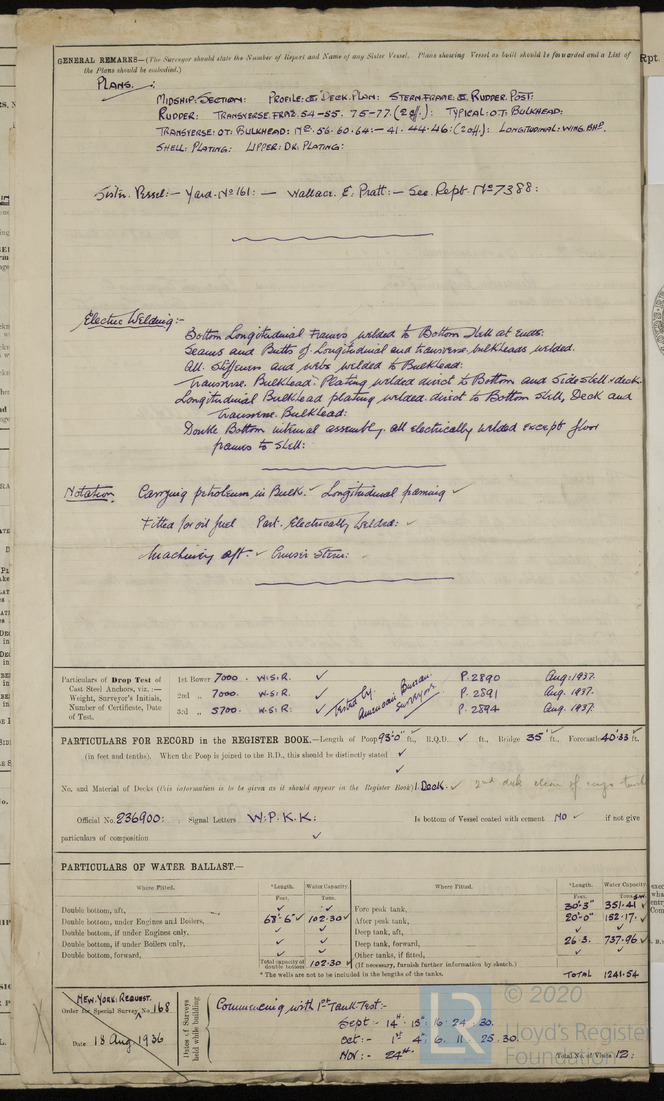 GENERAL REMARKS—(The Surveyor should state the Number of Report and Name of any Sister Vessel. Plans showing Vessel as built should be forwarded and a List of
the Plans should be embodied.)
Rpt.
PLANS.
MIDSHIP: SECTION: PROFILE: & DECK: PLAN: STERN FRAME: & RUDDER POST:
RUDDER: TRANSVERSE FRAS. 54-55. 75-77. (2 off.): TYPICAL: O.T: BULKHEAD:
TRANSVERSE: OT: BULKHEAD: Nos. 56. 60. 64:—41. 44. 46: (2 off.): LONGITUDINAL: WING. BHD.
SHELL: PLATING: UPPER: DK. PLATING:
Sister. Vessel:— Yard. No 161: — Wallace. E. Pratt:— See. Rept. No 7388:
Electric Welding:-
Bottom Longitudinal Frames, welded to Bottom Shell at ends.
Seams and Butts of Longitudinal and transverse bulkheads, welded.
All. Stiffeners and webs welded to Bulkhead:
Transverse. Bulkhead: Plating welded direct to Bottom and Side Shell & deck.
Longitudinal Bulkhead plating welded direct to Bottom Shell, Deck and
Transverse. Bulkhead:
Double Bottom internal assembly, all electrically welded except floor
frames to shell:
Notation. Carrying petroleum in Bulk. ✓ Longitudinal framing ✓
Fitted for oil fuel Part. Electrically Welded: ✓
Machinery aft. ✓ Cruiser Stern:
Particulars of Drop Test of
Cast Steel Anchors, viz. :—
Weight, Surveyor's Initials,
Number of Certificate, Date
of Test.
1st Bower 7000. W.S.R. ✓ P. 2890 Aug: 1937.
2nd „ 7000. W.S.R. ✓ P. 2891 Aug. 1937.
3rd „ 5700. W.S.R. ✓ P. 2894 Aug. 1937.
Tested by
American Bureau
Surveyor
PARTICULARS FOR RECORD in the REGISTER BOOK.—Length of Poop 93'0" ft., R.Q.D. ✓ ft., Bridge 35' ft., Forecastle 40.33 ft.
(in feet and tenths). When the Poop is joined to the B.D., this should be distinctly stated ✓
✓
No. and Material of Decks (this information is to be given as it should appear in the Register Book) 1. Deck. ✓ 2nd dk clear of cargo tank
Official No. 236900: Signal Letters W. P. K. K: Is bottom of Vessel coated with cement NO ✓ if not give
particulars of composition ✓
PARTICULARS OF WATER BALLAST.—
Where Fitted. *Length. Water Capacity. Where Fitted. *Length. Water Capacity.
Feet. Tons. Feet. Tons.
Double bottom, aft, ✓ ✓ Fore peak tank, 30'-3" 351.41 ✓
Double bottom, under Engines and Boilers, 67'-6" ✓ 102.30 ✓ After peak tank, 20'-0" 152.17 ✓
Double bottom, if under Engines only, ✓ ✓ Deep tank, aft, ✓ ✓
Double bottom, if under Boilers only, ✓ ✓ Deep tank, forward, 26.3. 737.96 ✓
Double bottom, forward, ✓ ✓ Other tanks, if fitted, ✓ ✓
Total capacity of double bottom 102.30 ✓ (If necessary, furnish further information by sketch.)
* The wells are not to be included in the lengths of the tanks. TOTAL 1241.54
NEW. YORK. REQUEST.
Order for Special Survey No. 168
Date 18 Aug 1936
Dates of Surveys
held while building
Commencing with 1st Tank Test:-
Sept - 14th. 15th. 16. 24. 30.
Oct:- 1st 4th. 6. 11. 25. 30.
Nov:- 24th.
Total No. of Visits 12:
© 2020
LR
Lloyd's Register
Foundation